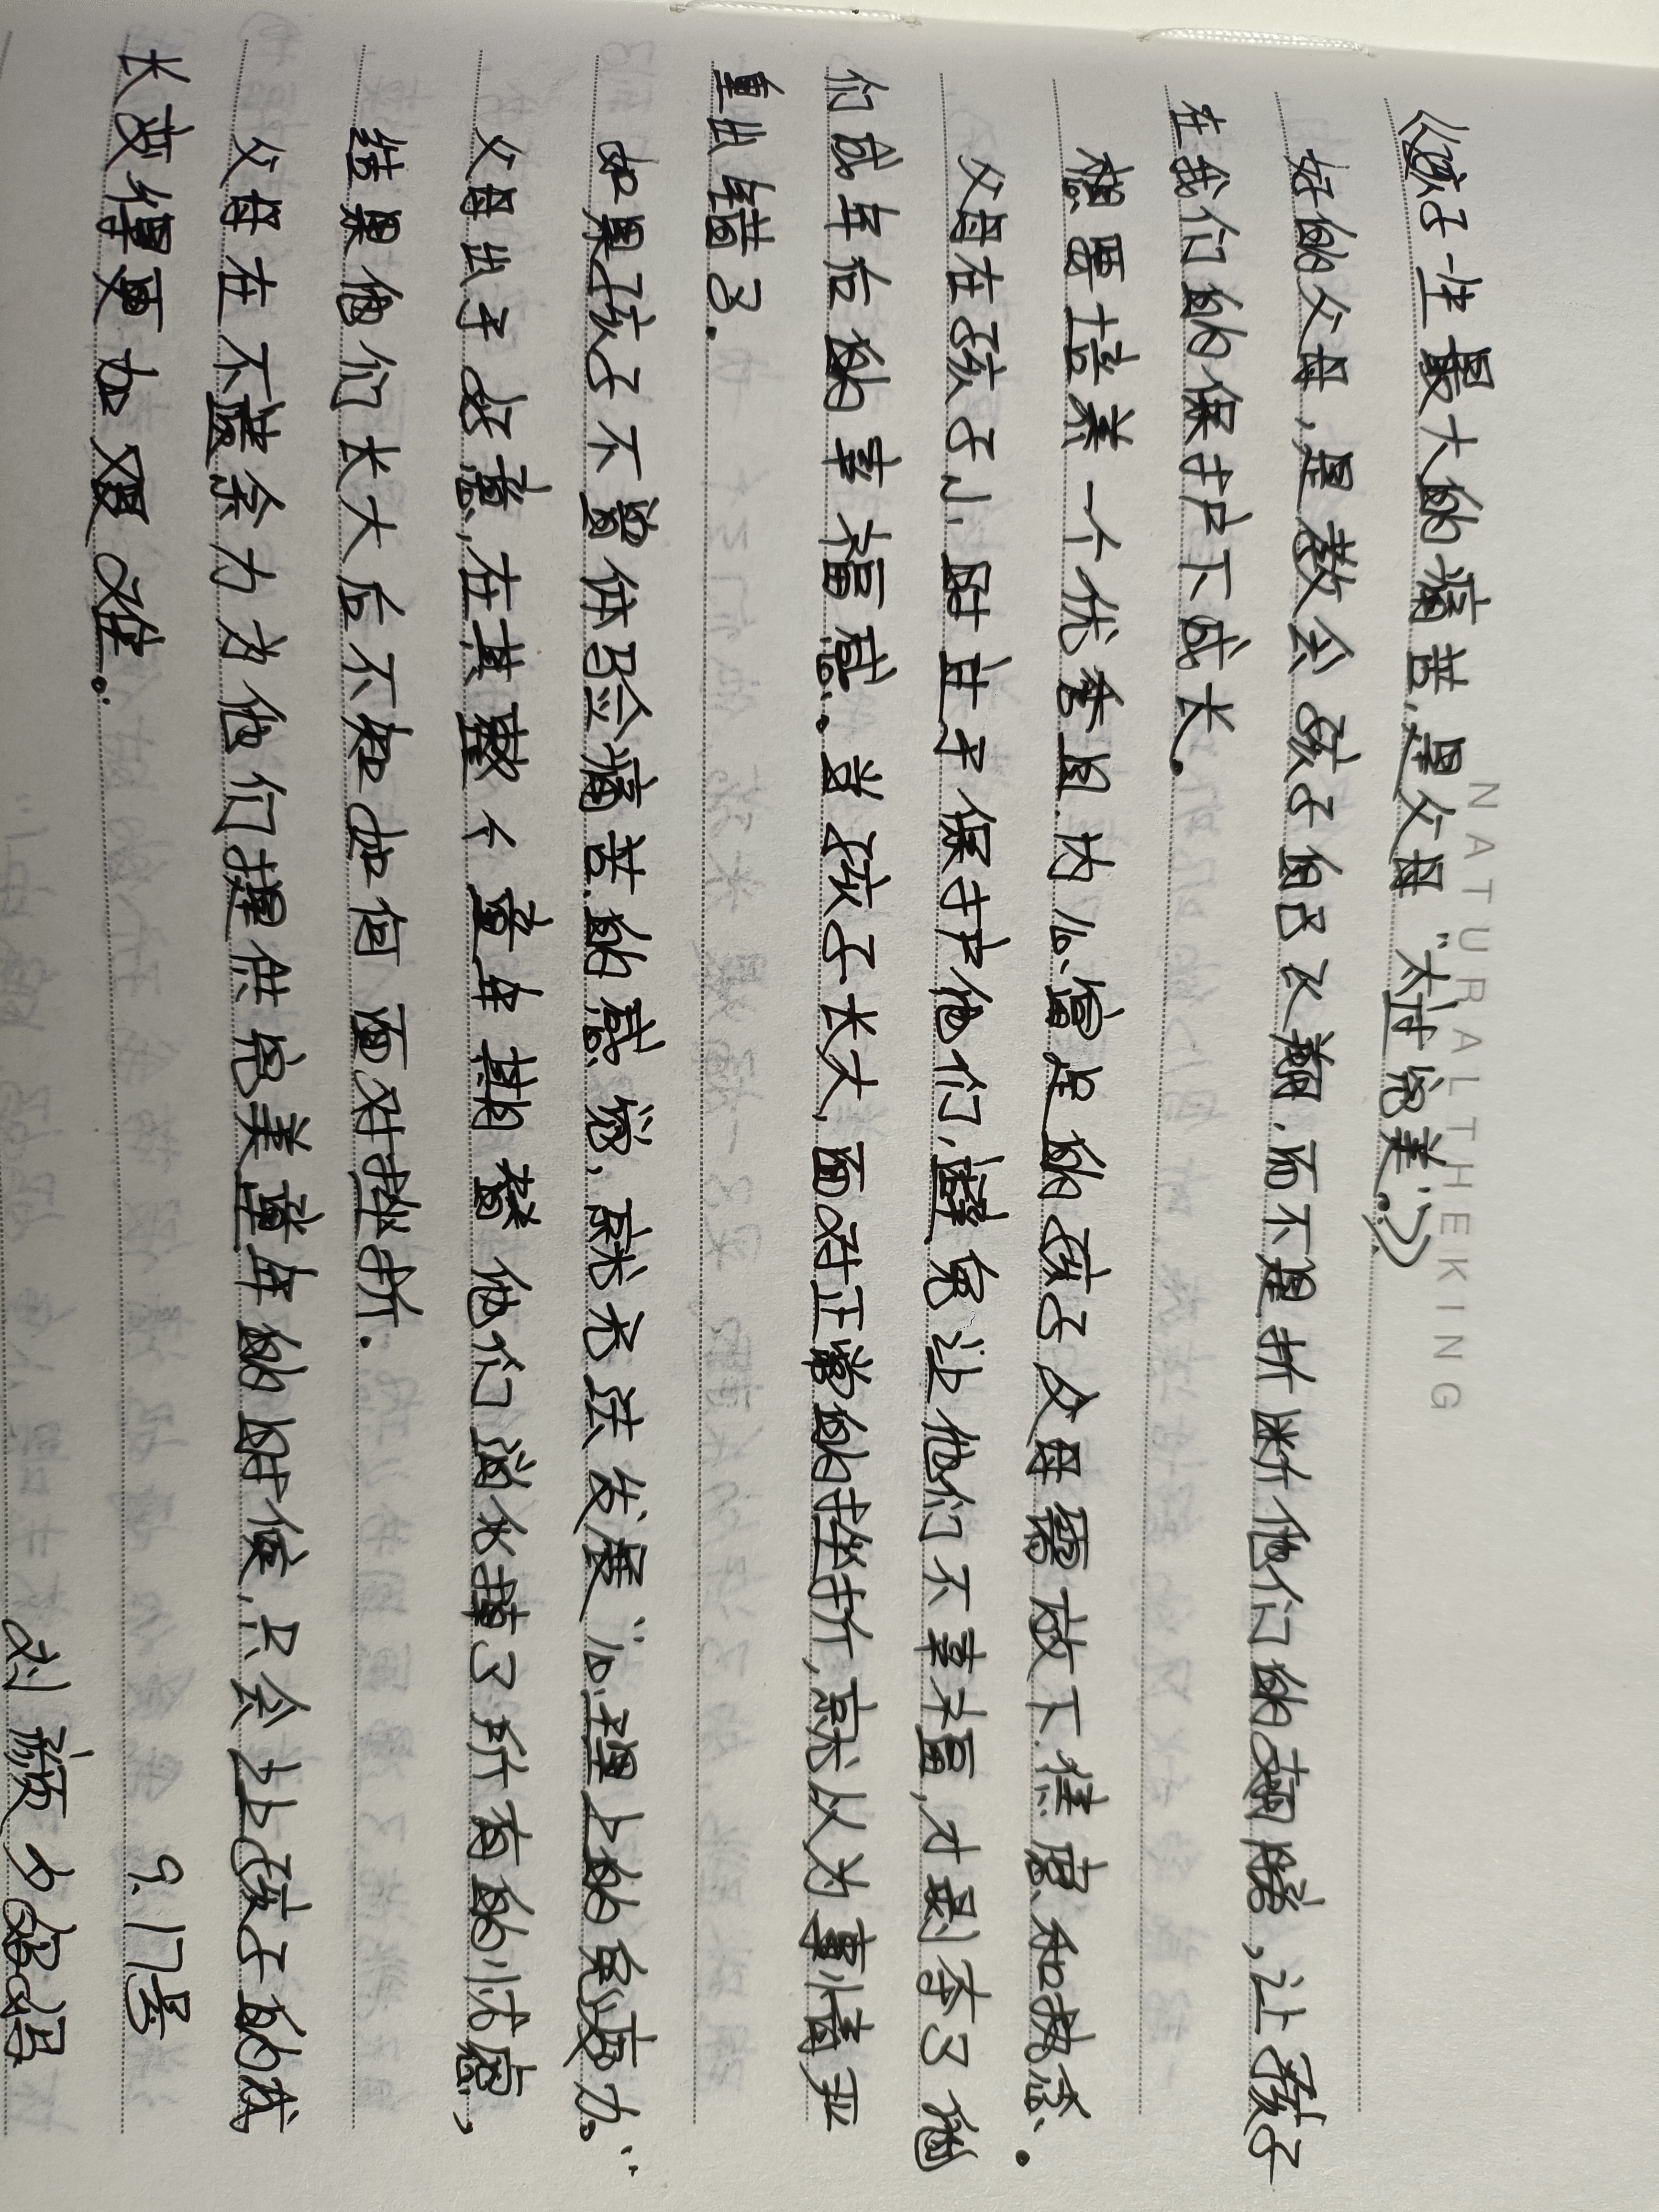 NATURALTHEKING
《孩子一生最大的痛苦,是父母"太过完美".》
好的父母,是教会孩子自己飞翔.而不是折断他们的翅膀,让孩子
在我们的保护下成长.
想要培养一个优秀且内心富足的孩子父母需放下焦虑和执念.
父母在孩子小时过于保护他们,避免让他们不幸福,才剥夺了他
们成年后的幸福感.当孩子长大,面对正常的挫折,就认为事情严
重出错了.
如果孩子不曾体验痛苦的感觉,就无法发展"心理上的免疫力."
父母出于好意,在其整个童年期替他们消化掉了所有的忧虑,
结果他们长大后不知如何面对挫折.
父母在不遗余力为他们提供完美童年的时候,只会让孩子的成
长变得更加艰难.
9.17号